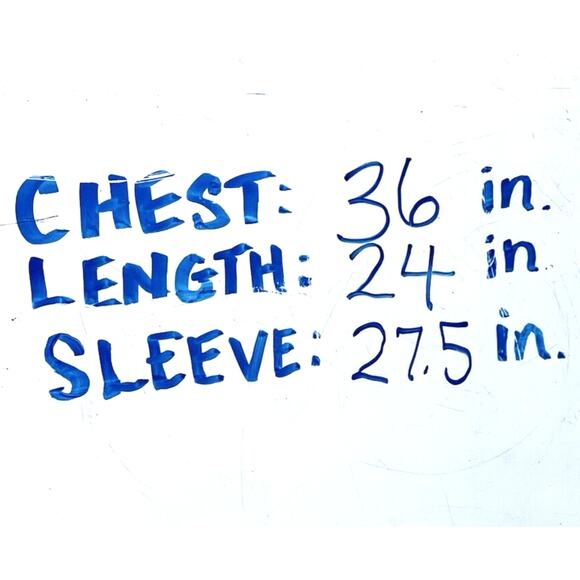 CHEST: 36 in.
LENGTH: 24 in
SLEEVE: 27.5 in.